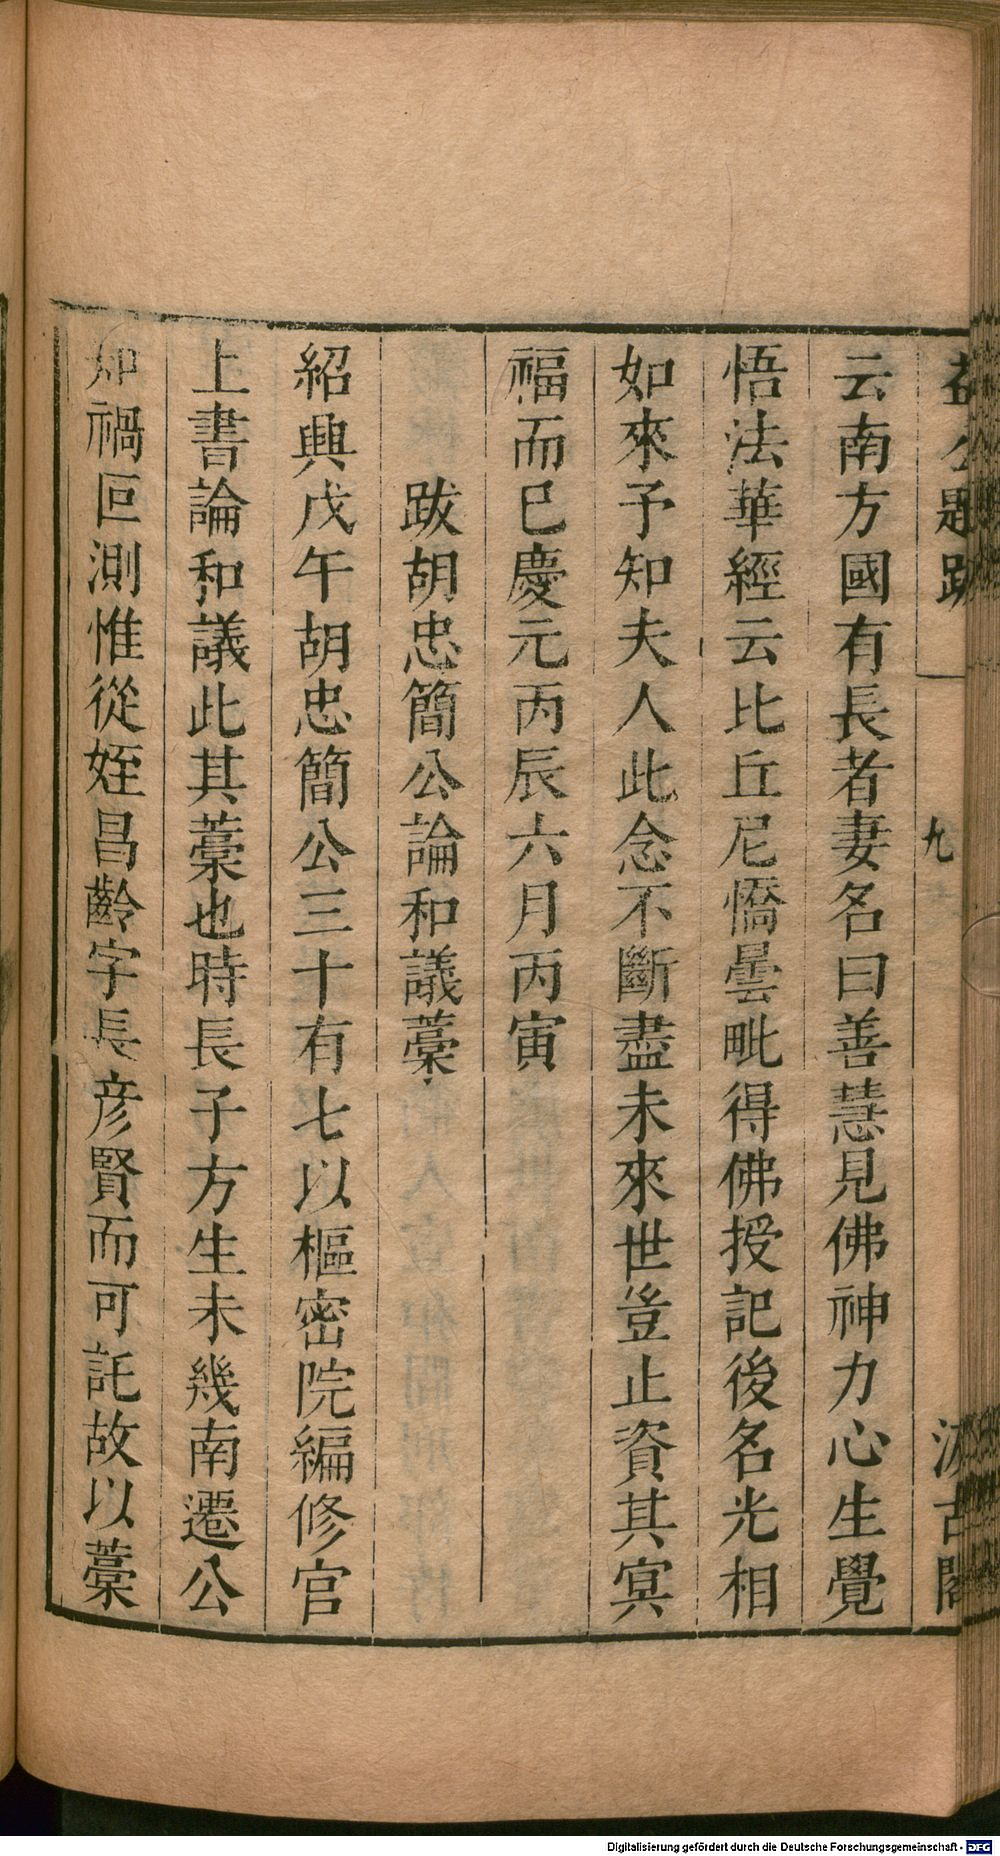 益公題跋
九
汲古閣
云南方國有長者妻名曰善慧見佛神力心生覺
悟法華經云比丘尼憍曇毗得佛授記後名光相
如來予知夫人此念不斷盡未來世豈止資其冥
福而已慶元丙辰六月丙寅
跋胡忠簡公論和議藁
紹興戊午胡忠簡公三十有七以樞密院編修官
上書論和議此其藁也時長子方生未幾南遷公
知禍叵測惟從姪昌齡字長彦賢而可託故以藁
Digitalisierung gefördert durch die Deutsche Forschungsgemeinschaft - DFG